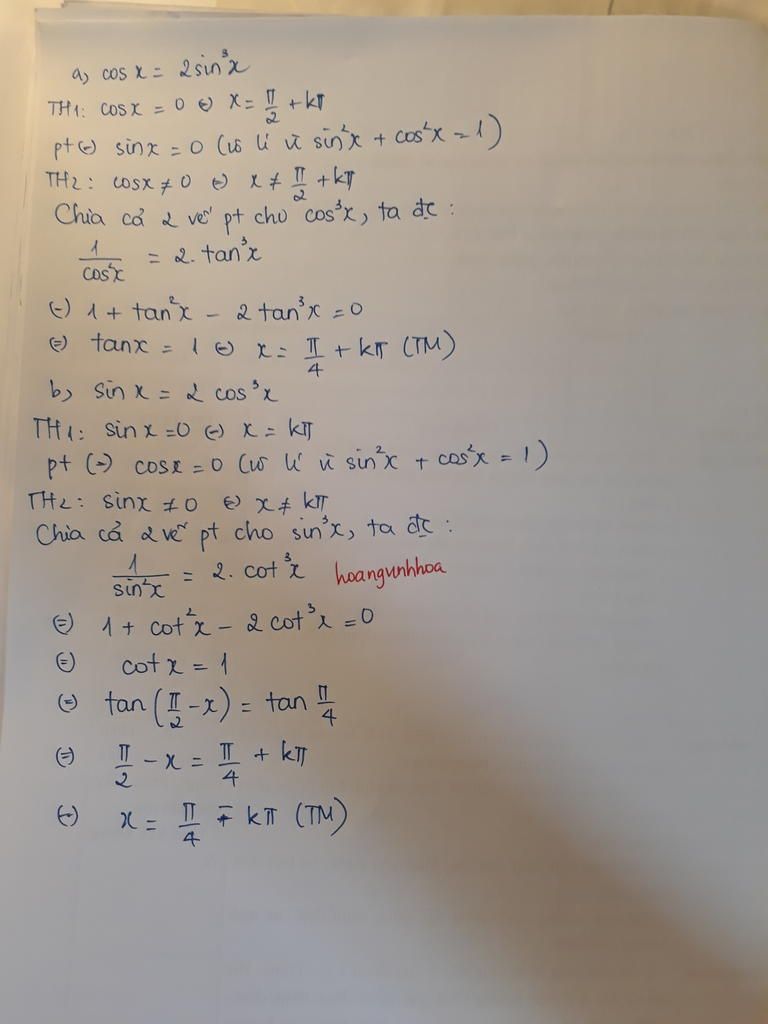 a, cos x = 2sin³x
TH1: cosx = 0 ⇔ x = π/2 + kπ
pt ⇔ sinx = 0 (vô lí vì sin²x + cos²x = 1)
TH2: cosx ≠ 0 ⇔ x ≠ π/2 + kπ
Chia cả 2 vế pt cho cos³x, ta đc:
1/cos²x = 2.tan³x
⇔ 1 + tan²x - 2tan³x = 0
⇔ tanx = 1 ⇔ x = π/4 + kπ (TM)
b, sin x = 2 cos³x
TH1: sin x = 0 ⇔ x = kπ
pt ⇔ cosx = 0 (vô lí vì sin²x + cos²x = 1)
TH2: sinx ≠ 0 ⇔ x ≠ kπ
Chia cả 2 vế pt cho sin³x, ta đc:
1/sin²x = 2.cot³x hoangunhhoa
⇔ 1 + cot²x - 2cot³x = 0
⇔ cotx = 1
⇔ tan(π/2 - x) = tan π/4
⇔ π/2 - x = π/4 + kπ
⇔ x = π/4 ∓ kπ (TM)